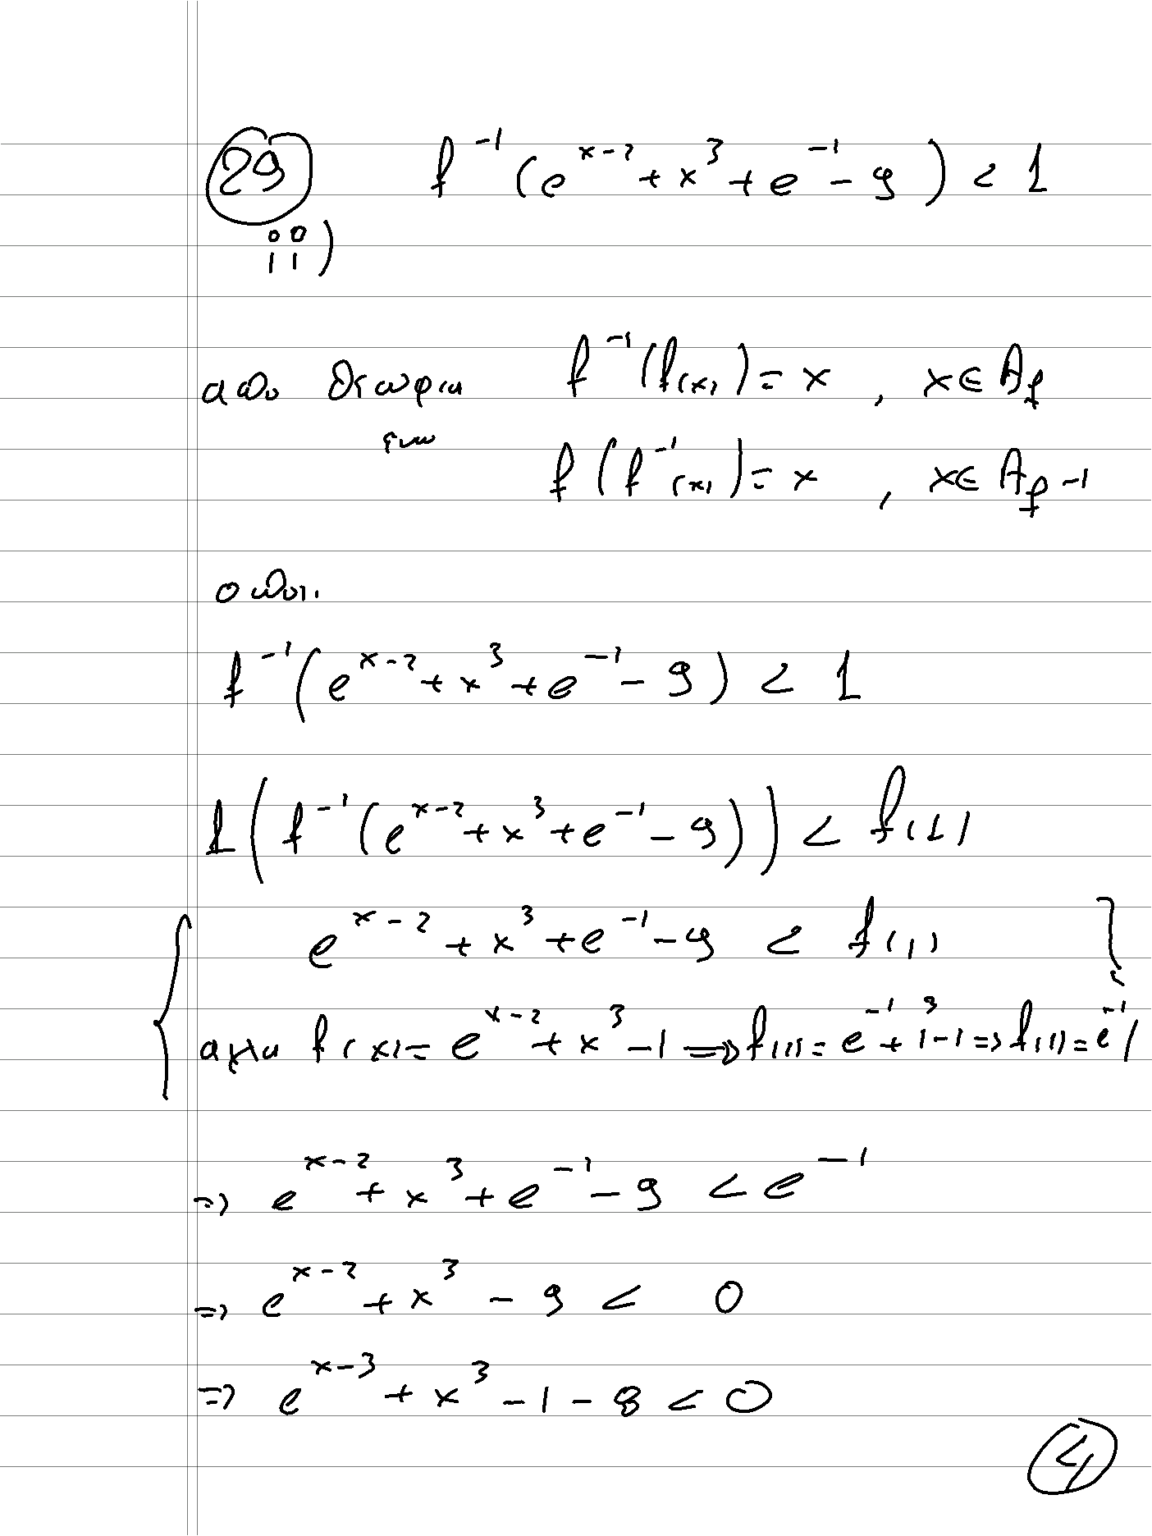 29 f⁻¹(e^{x-2} + x³ + e⁻¹ - 9) < 1
ii)
απο θεωρια f⁻¹(f(x)) = x , x ∈ A_f
f(f⁻¹(x)) = x , x ∈ A_{f⁻¹}
οποτ.
f⁻¹(e^{x-2} + x³ + e⁻¹ - 9) < 1
f(f⁻¹(e^{x-2} + x³ + e⁻¹ - 9)) < f(1)
{ e^{x-2} + x³ + e⁻¹ - 9 < f(1) }
αλλα f(x) = e^{x-2} + x³ - 1 ⇒ f(1) = e⁻¹ + 1³ - 1 ⇒ f(1) = e⁻¹ /
⇒ e^{x-2} + x³ + e⁻¹ - 9 < e⁻¹
⇒ e^{x-2} + x³ - 9 < 0
⇒ e^{x-3} + x³ - 1 - 8 < 0
4